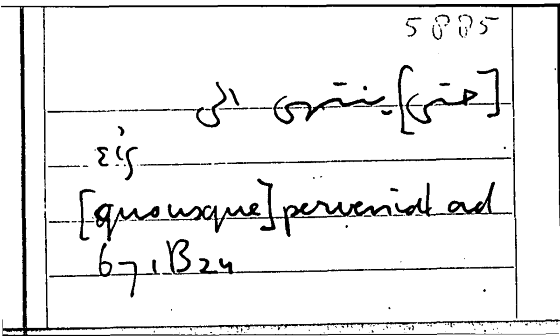 5885
[حتى] ينتهى الى
εἰς
[quousque] perveniat ad
671B24